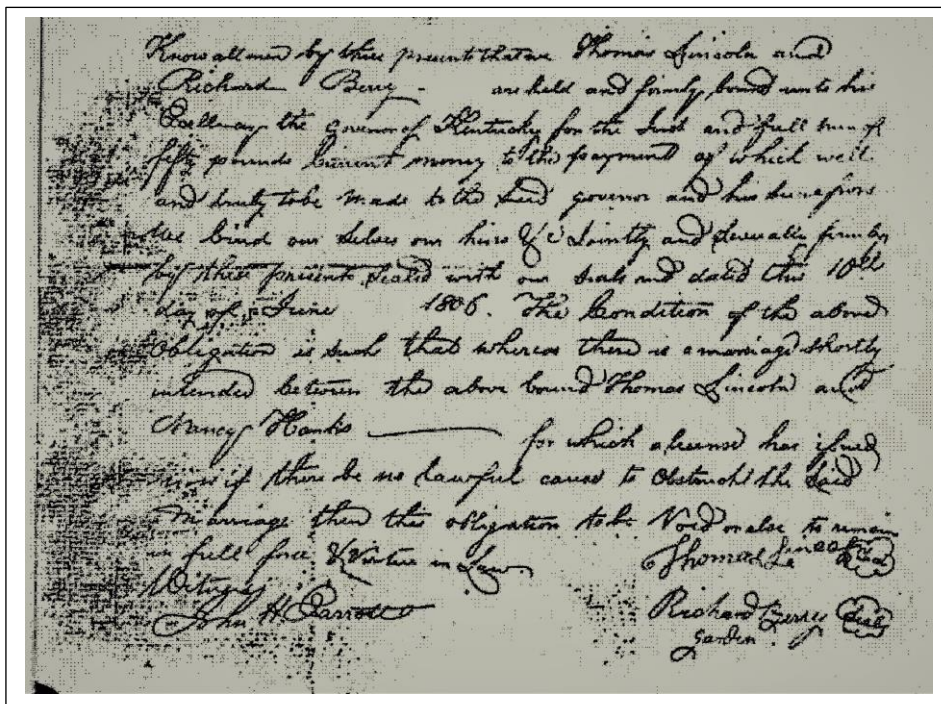 Know all men by these presents that we Thomas Lincoln and
Richard Berry - are held and firmly bound unto his
Excellency the Governor of Kentucky for the Just and full sum of
fifty pounds Current money to the payment of which well
and truly to be made to the said governor and his successors
We bind our selves our heirs &c Jointly and severally firmly
by these presents sealed with our seals and dated this 10th
day of June 1806. The Condition of the above
Obligation is such that whereas there is a marriage shortly
intended between the above bound Thomas Lincoln and
Nancy Hanks — for which a license has issued
now if there be no lawful cause to Obstruct the said
Marriage then this obligation to be Void or else to remain
in full force & Virtue in Law
Thomas Lincoln Seal
Witness
John H Parrott
Richard Berry Seal
garden